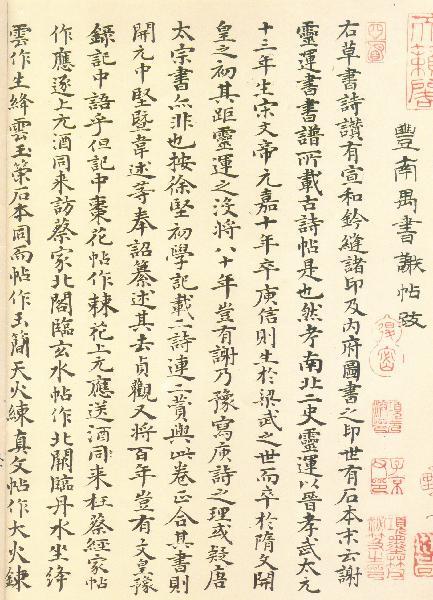 天籟閣
豐南禺書謝帖攷
右草書詩讚有宣和鈐縫諸印及内府圖書之印世有石本末云謝
靈運書書譜所載古詩帖是也然考南北二史靈運以晉孝武太元
十三年生宋文帝元嘉十年卒庾信則生於梁武之世而卒於隋文開
皇之初其距靈運之沒將八十年豈有謝乃豫寫庾詩之理或疑唐
太宗書亦非也按徐堅初學記載二詩連二賛與此卷正合其書則
開元中堅暨韋述等奉詔纂述其去貞觀又將百年豈有文皇豫
錄記中語乎但記中棗花帖作棘花上元應送酒同来枉蔡經家帖
作應逐上元酒同来訪蔡家北閣臨玄水帖作北闕臨丹水坐絳
雲作生絳雲玉策石本同而帖作玉簡天火練真文帖作大火鍊